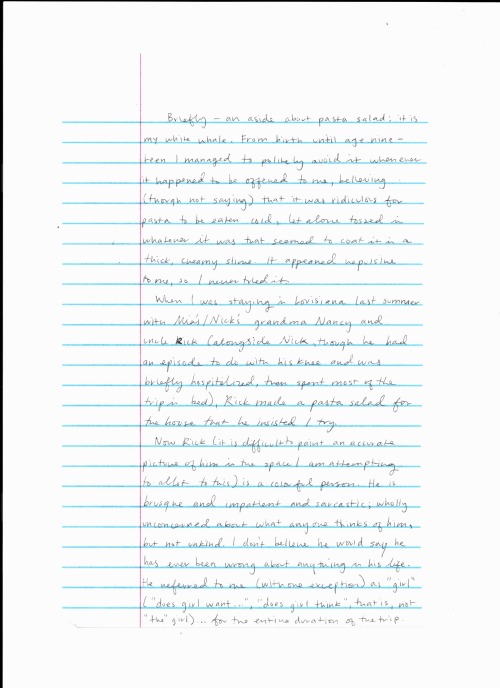 Briefly – an aside about pasta salad: it is
my white whale. From birth until age nine-
teen I managed to politely avoid it whenever
it happened to be offered to me, believing
(though not saying) that it was ridiculous for
pasta to be eaten cold, let alone tossed in
whatever it was that seemed to coat it in a
thick, creamy slime. It appeared repulsive
to me, so I never tried it.
When I was staying in Louisiana last summer
with Mia's/Nick's grandma Nancy and
uncle Rick (alongside Nick, though he had
an episode to do with his knee and was
briefly hospitalized, then spent most of the
trip in bed), Rick made a pasta salad for
the house that he insisted I try.
Now Rick (it is difficult to paint an accurate
picture of him in the space I am attempting
to allot to this) is a colorful person. He is
brusque and impatient and sarcastic; wholly
unconcerned about what anyone thinks of him,
but not unkind. I don't believe he would say he
has ever been wrong about anything in his life.
He referred to me (with one exception) as "girl"
("does girl want...", "does girl think", that is, not
"the" girl)... for the entire duration of the trip.